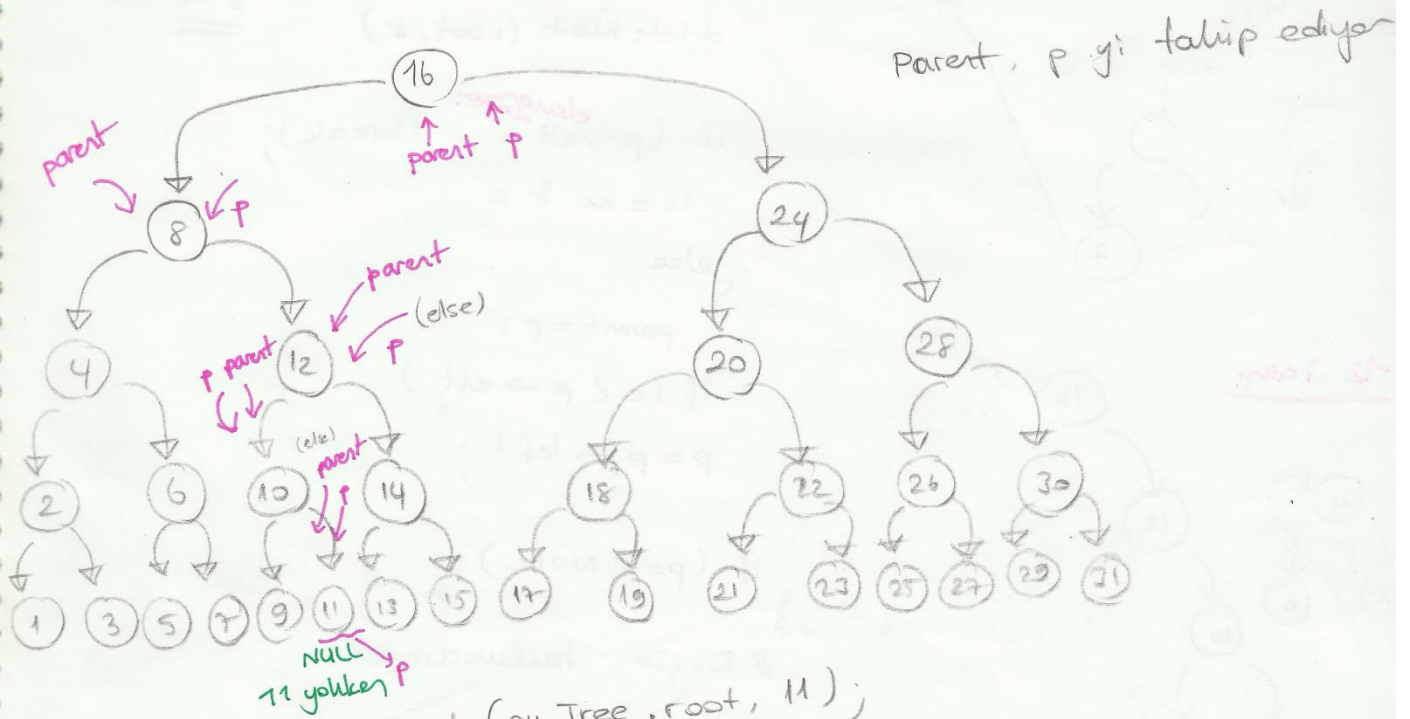 Parent, p yi takip ediyor
16
parent p
parent
p
8
24
parent
(else)
p
4
p parent
12
20
28
(else)
parent
p
2
6
10
14
18
22
26
30
1
3
5
7
9
11
13
15
17
19
21
23
25
27
29
31
NULL
p
11 yokken
Tree.root, 11);